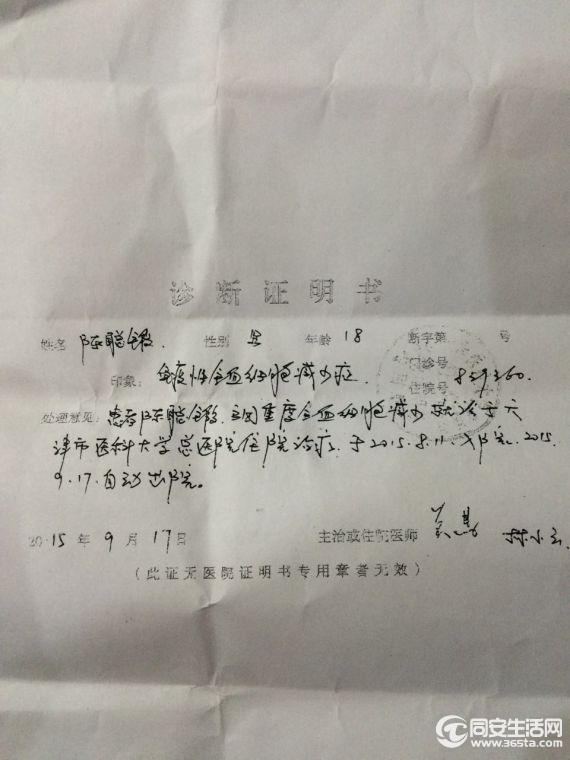 诊断证明书
姓名 陈聪 性别 男 年龄 18 断字第 号
门诊号
印象: 免疫性全血细胞减少症 住院号 859360
处理意见: 患者陈聪 主因重度全血细胞减少就诊于天
津市医科大学总医院住院治疗。于2015.8.11.入院. 2015.
9.17.自动出院。
2015年9月17日 主治或住院医师 林小
(此证无医院证明书专用章者无效)
同安生活网
www.365ta.com